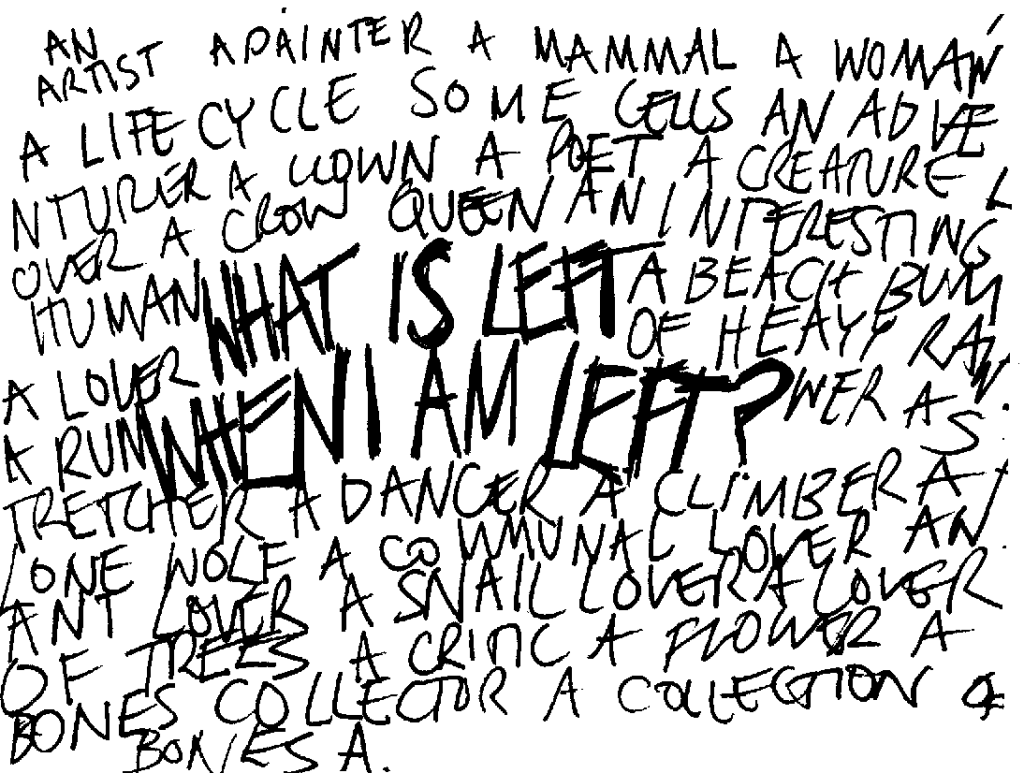 AN
ARTIST A PAINTER A MAMMAL A WOMAN
A LIFE CYCLE SOME CELLS AN ADVE
NTURER A CLOWN A POET A CREATURE L
OVER A CROW QUEEN AN INTERESTING
HUMAN WHAT IS LEFT A BEACH BUM
OF HEAVY RA
A LOVER WHEN I AM LEFT? WER A S
A RUN
TRETCHER A DANCER A CLIMBER A
LONE WOLF A COMMUNAL LOVER AN
ANT LOVER A SNAIL LOVER A LOVER
OF TREES A CRITIC A FLOWER A
BONES COLLECTOR A COLLECTION OF
BONES A.